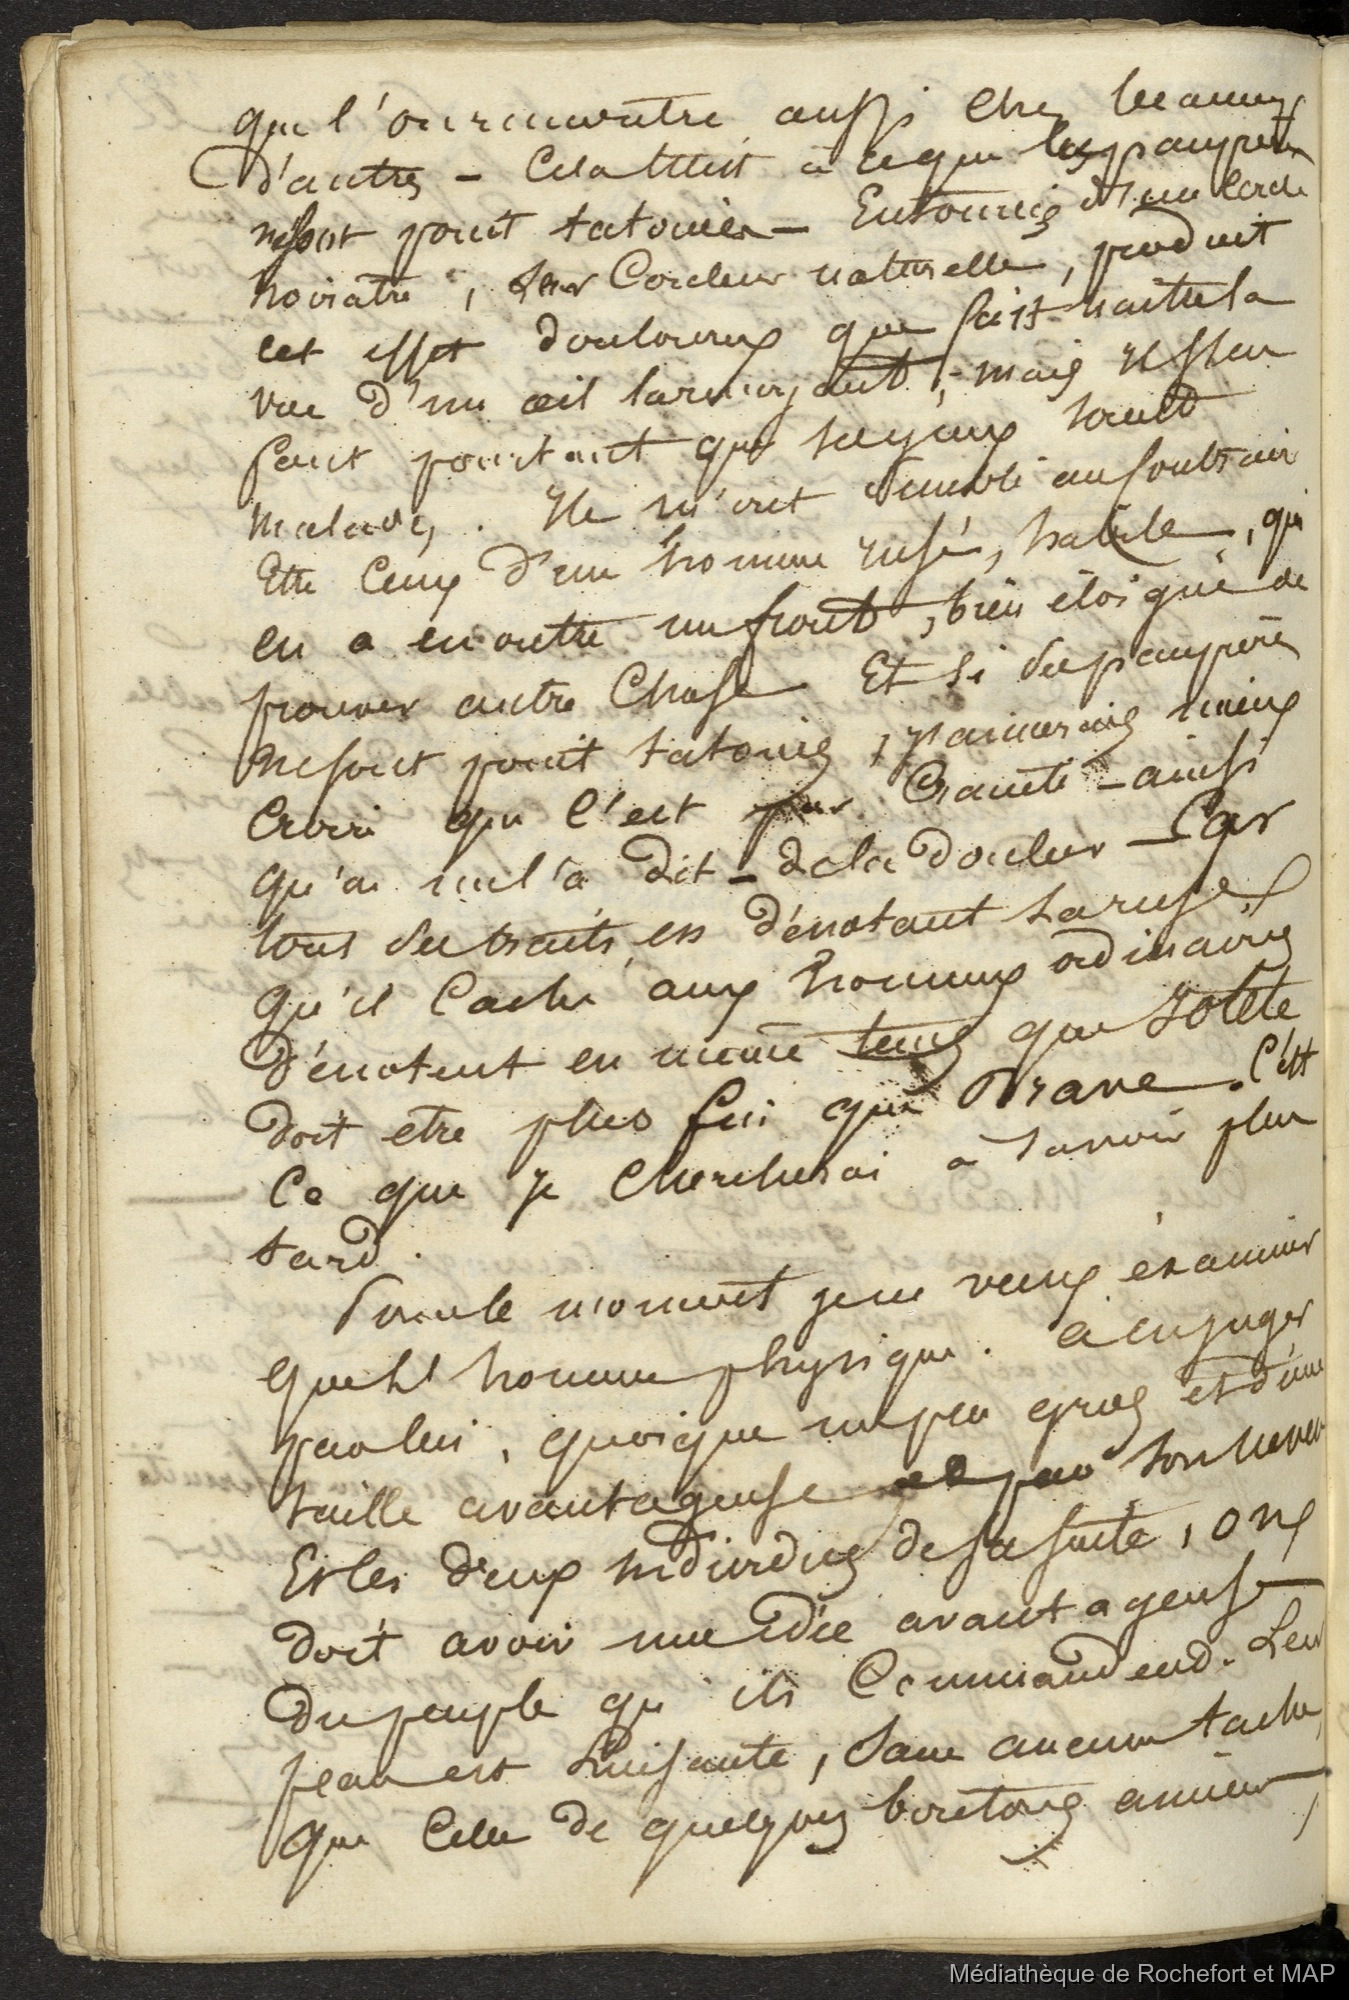 que l'on rencontre aussi chez beaucoup
d'autres - Cela tient à ceque les paupières
ne sont point tatouées - Entourées d'un cercle
noirâtre, leur Couleur naturelle, produit
cet effet douloureux que fait naître la
vue d'un œil larmoyant, - mais il ne
faut pourtant que ses yeux soient
malades. Ils m'ont semblé au contraire
Etre Ceux d'un homme rusé, habile, qui
en a en outre un front, bien éloigné de
prouver autre Chose Et si ses paupières
ne sont point tatouées, j'aimerais mieux
Croire que c'est par Crainte - ainsi
qu'on me l'a dit - de la douleur - Car
tous ses traits, en dénotant sa ruse,
qu'il Cache aux hommes ordinaires
dénotent en même tems que Totété
doit etre plus fin que Brave. C'est
Ce que je Chercherai à savoir plus
tard.
Pour le moment je ne veux éxaminer
que l' homme physique. à en juger
par lui, quoique un peu gros et d'une
taille avantageuse et par son neveu
Et les deux individus de sa suite, on
doit avoir une idée avantageuse
du peuple qu'ils Commandent. Leur
peau est luisante, sans aucune tache,
que Celle de quelques boutons
Médiathèque de Rochefort et MAP